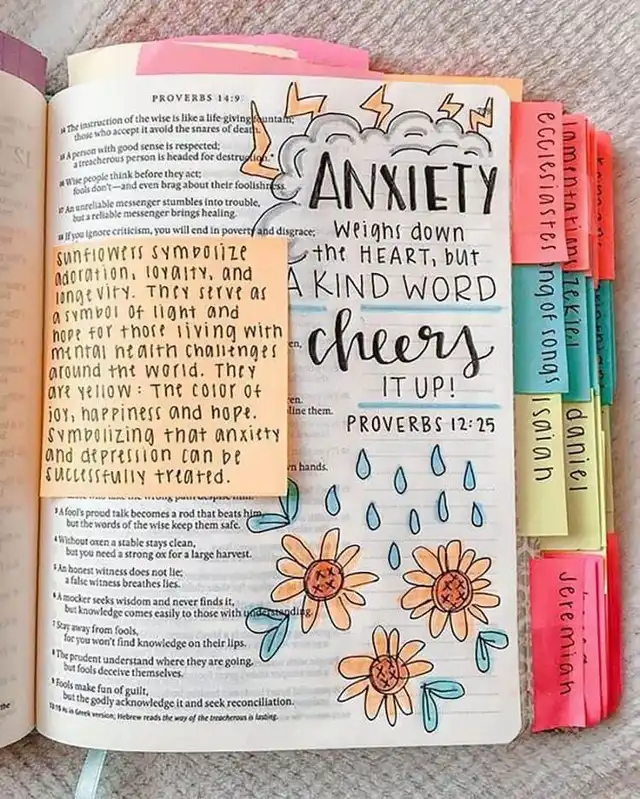 PROVERBS 14:9
14 The instruction of the wise is like a life-giving fountain;
those who accept it avoid the snares of death.
15 A person with good sense is respected;
a treacherous person is headed for destruction.*
16 Wise people think before they act;
fools don't—and even brag about their foolishness.
17 An unreliable messenger stumbles into trouble,
but a reliable messenger brings healing.
18 If you ignore criticism, you will end in poverty and disgrace;
Sunflowers symbolize
adoration, loyalty, and
longevity. They serve as
a symbol of light and
hope for those living with
mental health challenges
around the world. They
are yellow: The color of
joy, happiness and hope.
Symbolizing that anxiety
and depression can be
successfully treated.
line them.
hands.
3 A fool's proud talk becomes a rod that beats him,
but the words of the wise keep them safe.
4 Without oxen a stable stays clean,
but you need a strong ox for a large harvest.
5 An honest witness does not lie;
a false witness breathes lies.
6 A mocker seeks wisdom and never finds it,
but knowledge comes easily to those with understanding.
7 Stay away from fools,
for you won't find knowledge on their lips.
8 The prudent understand where they are going,
but fools deceive themselves.
9 Fools make fun of guilt,
but the godly acknowledge it and seek reconciliation.
13:15 As in Greek version; Hebrew reads the way of the treacherous is lasting.
ANXIETY
Weighs down
the HEART, but
A KIND WORD
cheers
IT UP!
PROVERBS 12:25
ecclesiastes
lamentations
ong of songs
zekiel
Isaiah
daniel
Jeremiah